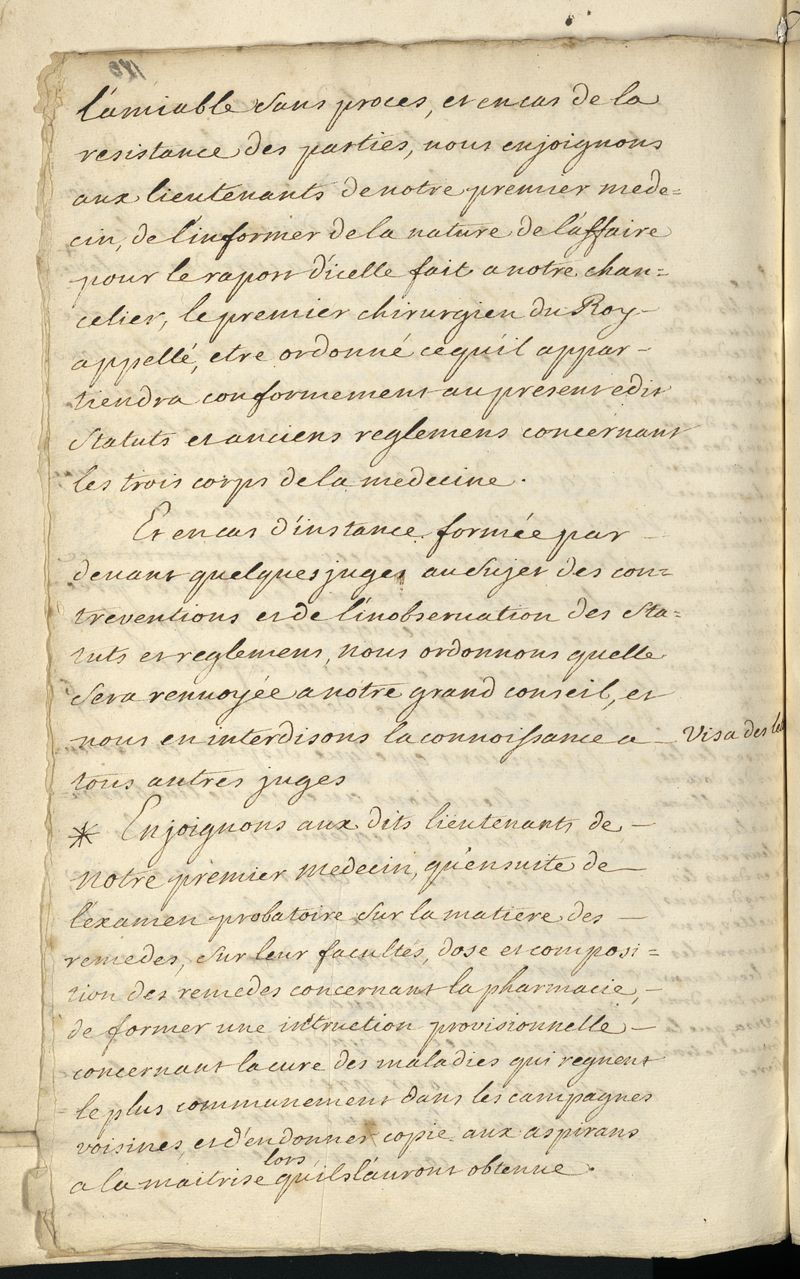 l'amiable sans proces, et en cas de la
resistance des parties, nous enjoignons
aux lieutenants de notre premier mede=
cin, de l'informer de la nature de l'affaire
pour le raport d'icelle fait a notre chan=
celier, le premier chirurgien du Roy
appellé, etre ordonné ce qu'il appar-
tiendra conformement au present edit
statuts et anciens reglemens concernant
les trois corps de la medecine.
Et en cas d'instance formée par
devant quelques juges au sujet des con=
treventions et de l'inobservation des sta=
tuts et reglemens, nous ordonnons quelle
sera renvoyée a notre grand conseil, et
nous en interdisons la connoissance a
tous autres juges
Visa des
* Enjoignons aux dits lieutenants de
notre premier medecin, qu'ensuite de
l'examen probatoire sur la matiere des
remedes, sur leur facultés, dose et composi=
tion des remedes concernant la pharmacie,
de former une intruction provisionnelle
concernant la cure des maladies qui regnent
le plus communement dans les campagnes
voisines, et d'en donner copie aux aspirans
a la maitrise lors qu'ils l'auront obtenue.